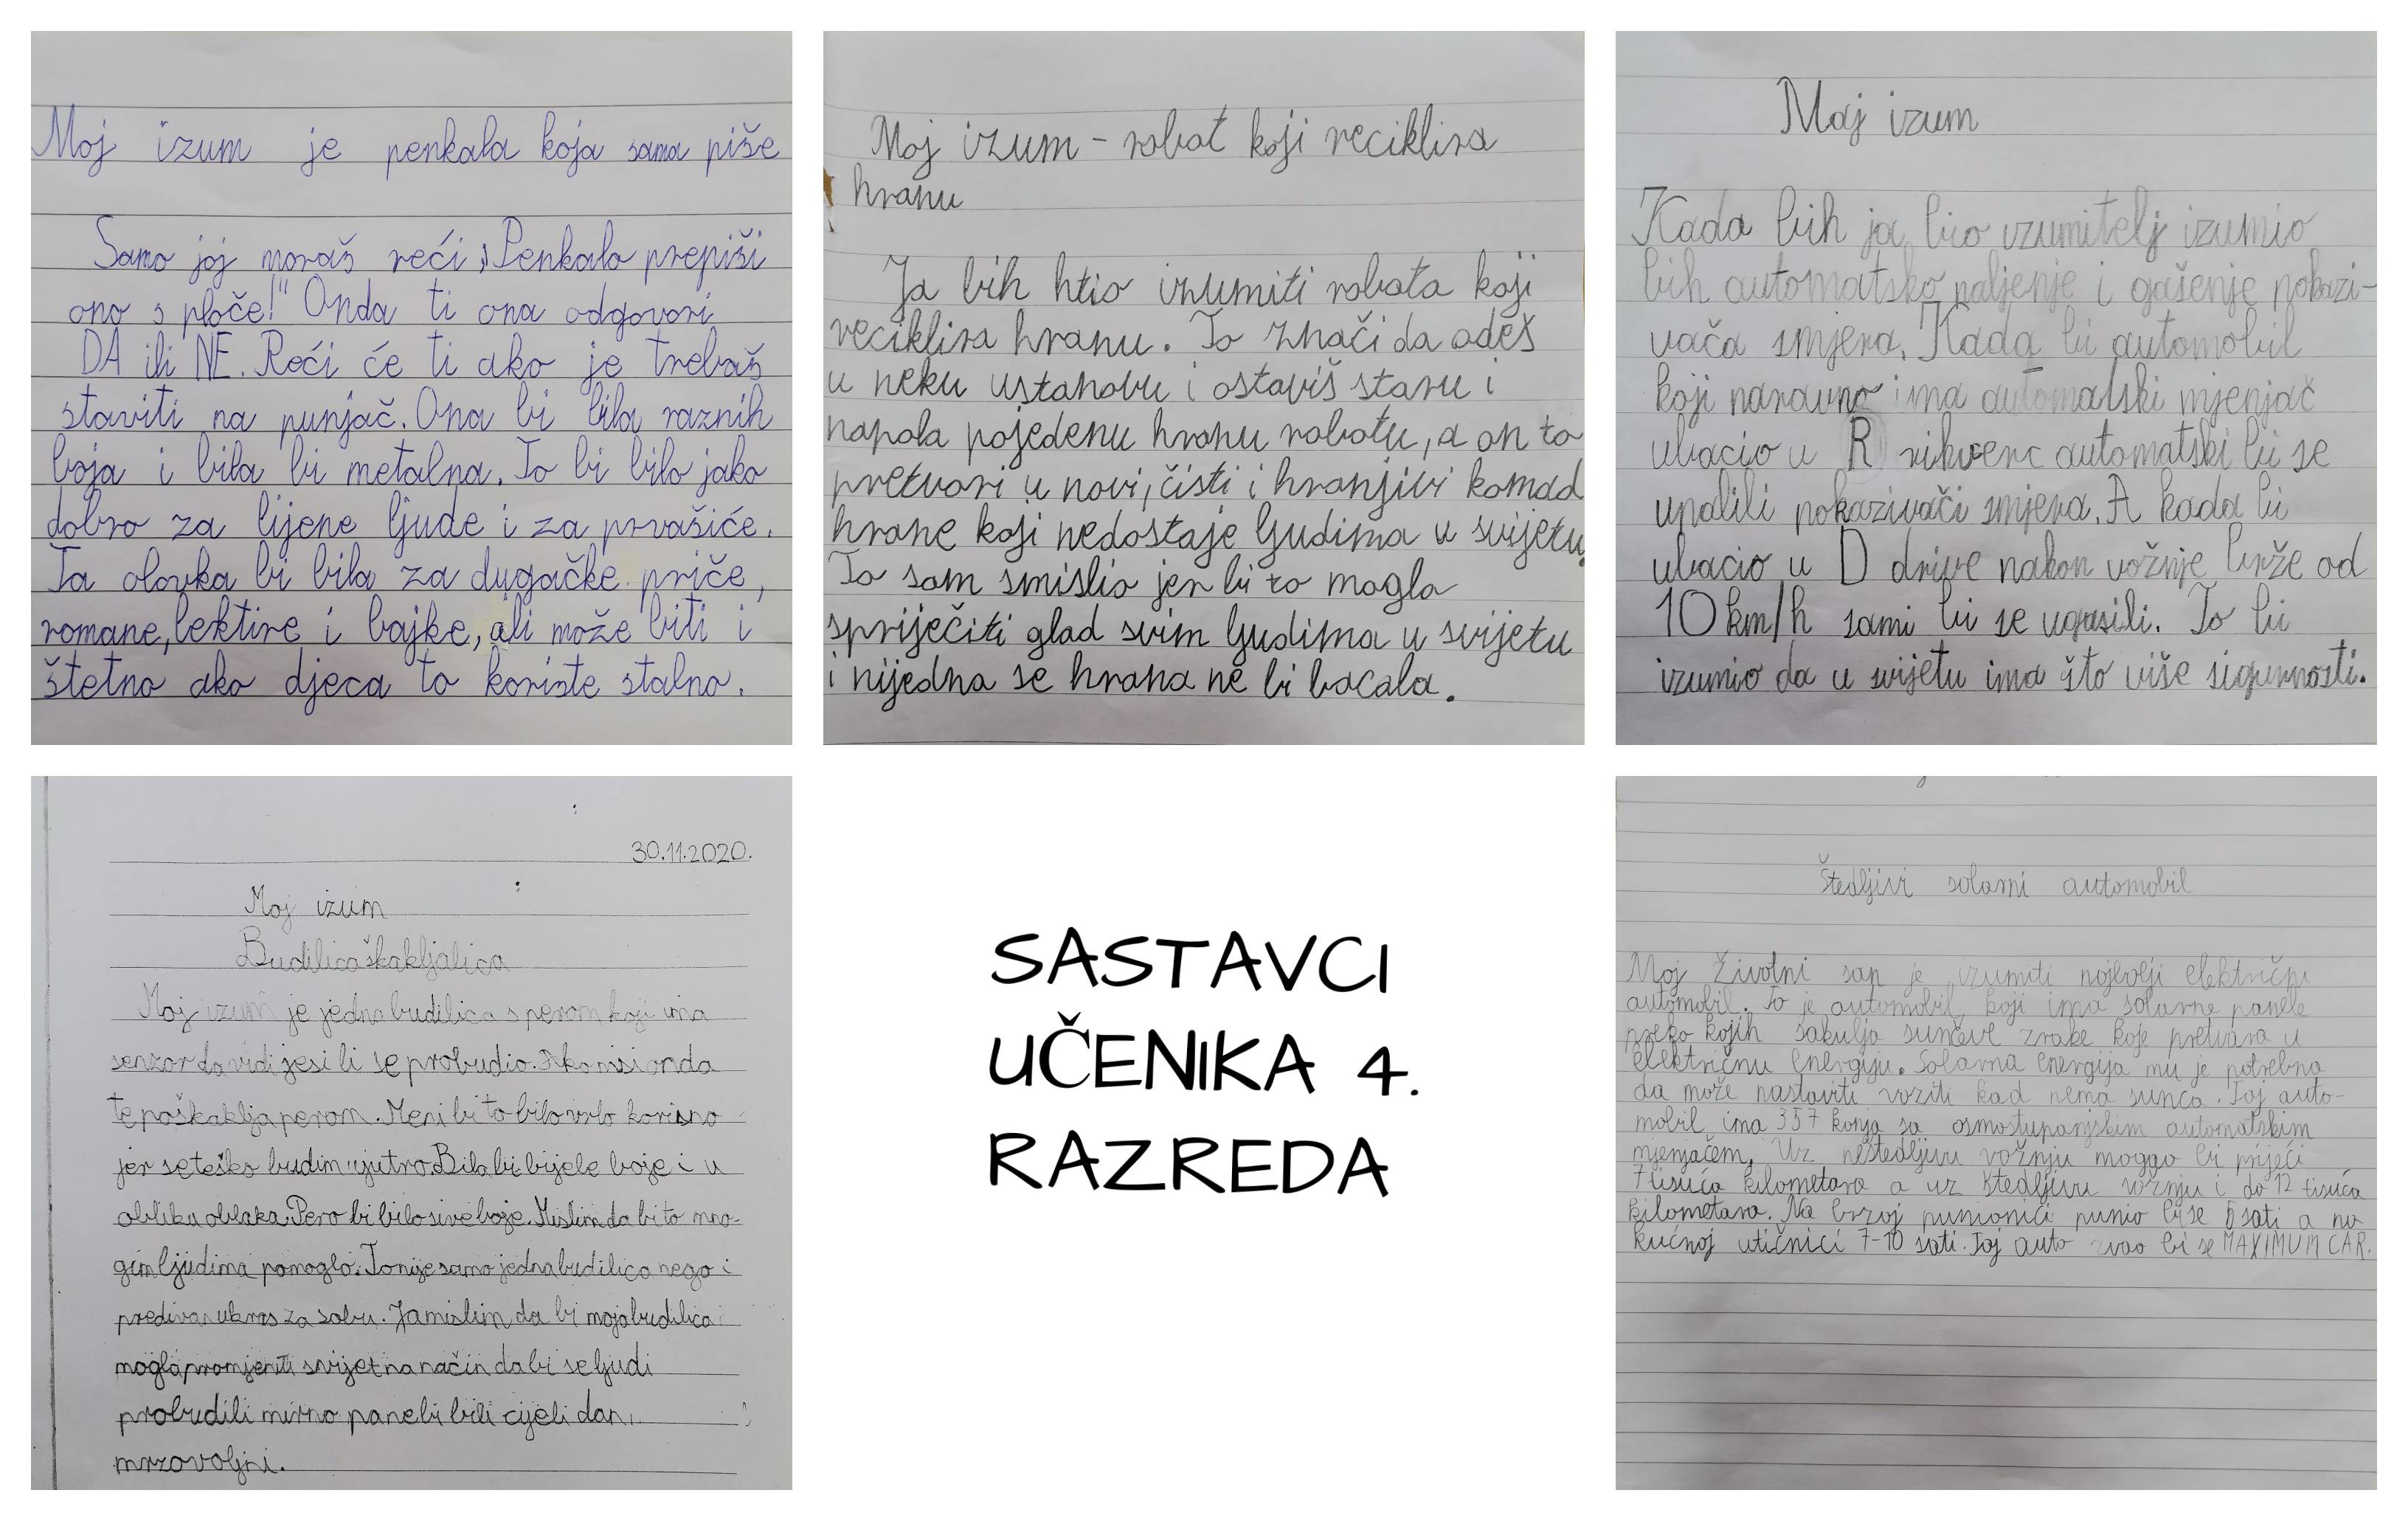 Moj izum je penkala koja sama piše
Samo joj moraš reći „Penkalo prepiši
ono s ploče!" Onda ti ona odgovori
DA ili NE. Reći će ti ako je trebaš
staviti na punjač. Ona bi bila raznih
boja i bila bi metalna. To bi bilo jako
dobro za lijene ljude i za prvašiće.
Ta olovka bi bila za dugačke priče,
romane, lektire i bajke, ali može biti i
štetno ako djeca to koriste stalno.
Moj izum - robot koji reciklira
hranu
Ja bih htio izumiti robota koji
reciklira hranu. To znači da odeš
u neku ustanovu i ostaviš staru i
napola pojedenu hranu robotu, a on to
pretvori u novi, čisti i hranjivi komad
hrane koji nedostaje ljudima u svijetu.
To sam smislio jer bi to moglo
spriječiti glad svim ljudima u svijetu
i nijedna se hrana ne bi bacala.
Moj izum
Kada bih ja bio izumitelj izumio
bih automatsko paljenje i gašenje pokazi-
vača smjera. Kada bi automobil
koji naravno ima automatski mjenjač
ubacio u R rikverc automatski bi se
upalili pokazivači smjera. A kada bi
ubacio u D drive nakon vožnje brže od
10 km/h sami bi se ugasili. To bi
izumio da u svijetu ima što više sigurnosti.
30.11.2020.
Moj izum
Budilica škakljalica
Moj izum je jedna budilica s perom koji ima
senzor da vidi jesi li se probudio. Ako nisi onda
te poškaklja perom. Meni bi to bilo vrlo korisno
jer se teško budim ujutro. Bila bi bijele boje i u
obliku oblaka. Pero bi bilo sive boje. Mislim da bi to mno-
gim ljudima pomoglo. To nije samo jedna budilica nego i
predivan ukras za sobu. Ja mislim da bi moja budilica
mogla promjeniti svijet na način da bi se ljudi
probudili mirno pa ne bi bili cijeli dan
mrzovoljni.
SASTAVCI
UČENIKA 4.
RAZREDA
Štedljivi solarni automobil
Moj životni san je izumiti najbolji električni
automobil. To je automobil koji ima solarne panele
preko kojih sakulja sunčeve zrake koje pretvara u
električnu energiju. Solarna energija mu je potrebna
da može nastaviti voziti kad nema sunca. Taj auto-
mobil ima 357 konja sa osmostupanjskim automatskim
mjenjačem. Uz neštedljivu vožnju mogao bi prijeći
7 tisuća kilometara a uz štedljivu vožnju i do 12 tisuća
kilometara. Na brzoj punionici punio bi se sati a na
kućnoj utičnici 7-10 sati. Taj auto zvao bi se MAXIMUM CAR.